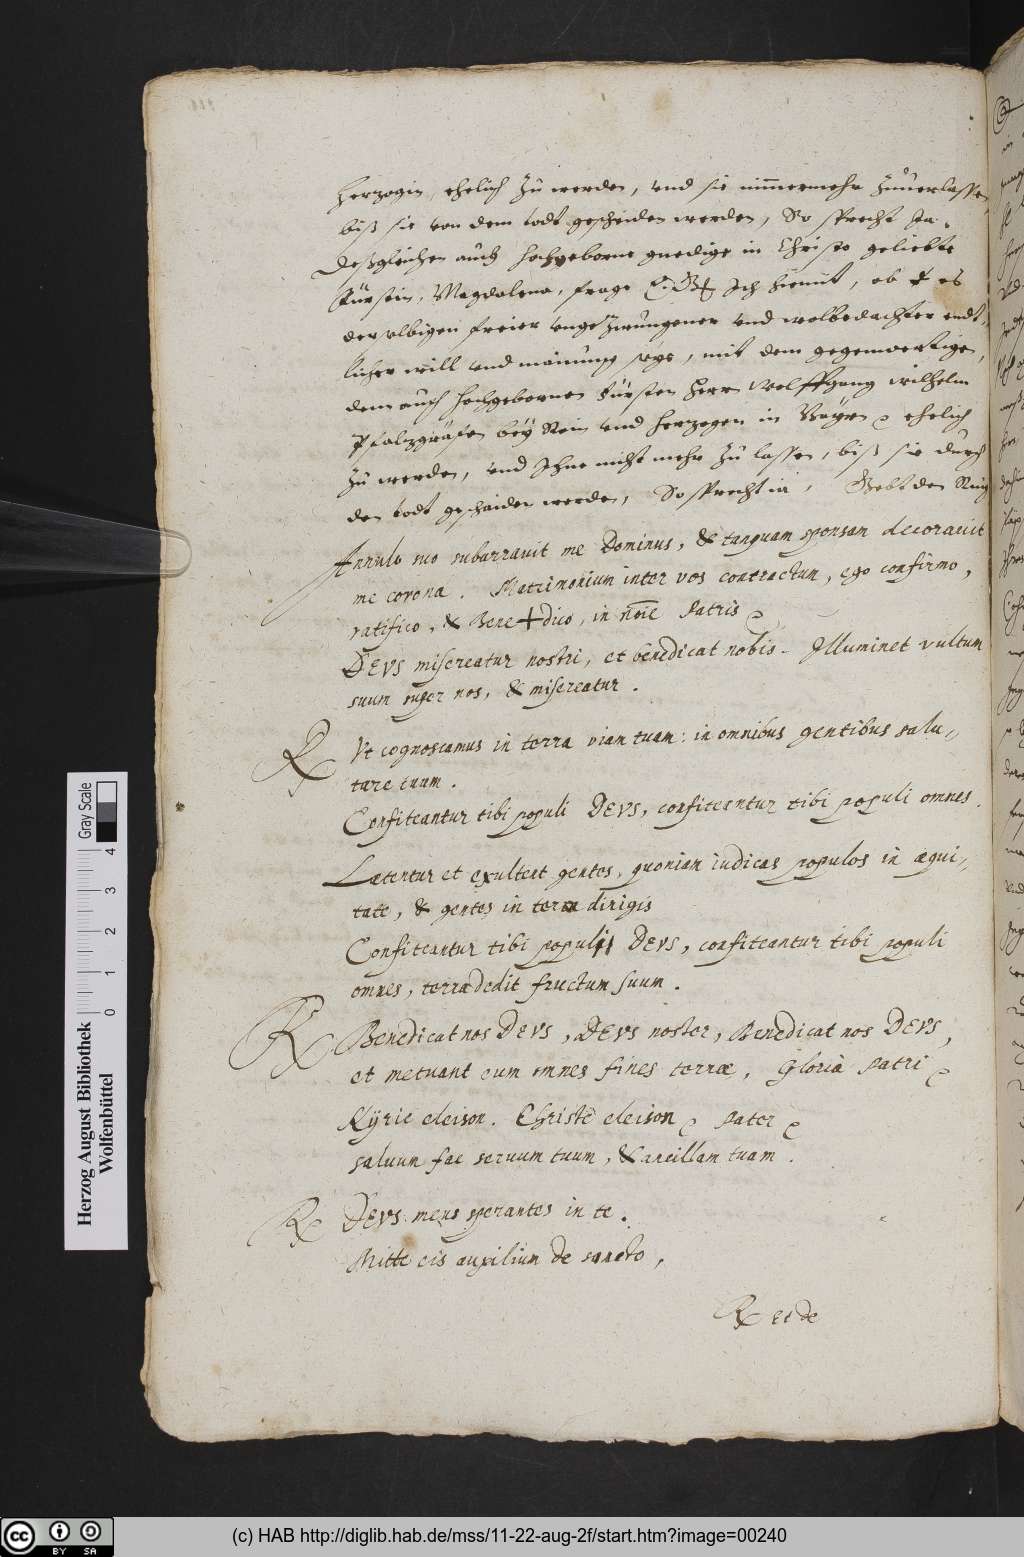 herzogin, ehelich zu werden, vnd sie nimmermehr zuuerlassen
biß sie von dem todt gescheiden werden, So sprecht Ja.
Deßgleichen auch hochgeborne gnedige in Christo geliebte
Fürstin, Magdalena, frage E. G. Ich hiemit, ob es
derselbigen freier vngezwungener vnd wolbedachter endt-
licher will vnd mainung seye, mit dem gegenwertigen,
dem auch hochgebornen Fürsten Herr Wolffgang Wilhelm
Pfaltzgräfen bey Rein vnd hertzogen in Bayrn ehelich
zu werden, vnd Ihne nicht mehr zu lassen, biß sie durch
den todt geschaiden werden, So sprecht ia, Gebt den Ring
Annulo suo subarrauit me Dominus, & tanquam sponsam decorauit
me corona. Matrimonium inter vos contractum, ego confirmo,
ratifico, & Bene+dico, in noīe Patris
DEVS misereatur nostri, et benedicat nobis. Illuminet vultum
suum super nos, & misereatur.
R Vt cognoscamus in terra viam tuam: in omnibus gentibus salu-
tare tuum.
Confiteantur tibi populi DEVS, confiteantur tibi populi omnes.
Lætentur et exultent gentes, quoniam iudicas populos in æqui-
tate, & gentes in terra dirigis
Confiteantur tibi populi DEVS, confiteantur tibi populi
omnes, terra dedit fructum suum.
R Benedicat nos DEVS, DEVS noster, Benedicat nos DEVS,
et metuant eum omnes fines terræ, Gloria Patri
Kyrie eleison. Christe eleison Pater
saluum fac seruum tuum, & ancillam tuam.
R DEVS meus sperantes in te.
Mitte eis auxilium de sancto,
R et de
Herzog August Bibliothek
Wolfenbüttel
0 1 2 3 4
Gray Scale
cc BY SA
(c) HAB http://diglib.hab.de/mss/11-22-aug-2f/start.htm?image=00240